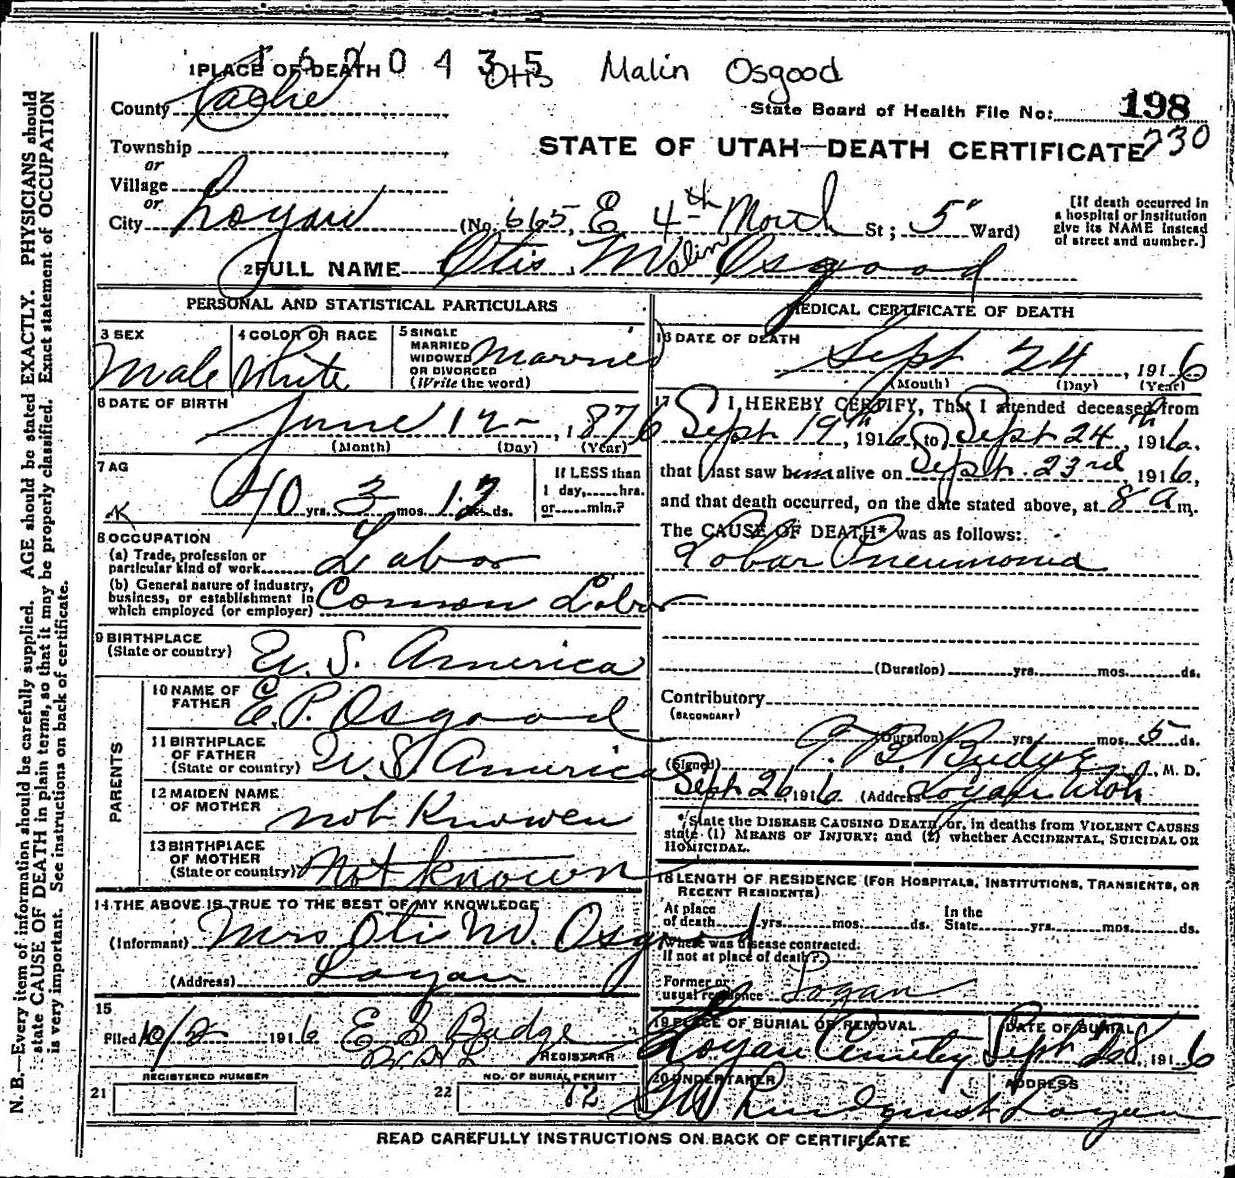 1620435
1 PLACE OF DEATH
Otis Malin Osgood
County Cache
State Board of Health File No: 198
230
Township
or
Village
or
STATE OF UTAH—DEATH CERTIFICATE
City Logan (No. 665, E 4th North St; 5" Ward)
[If death occurred in a hospital or institution give its NAME instead of street and number.]
2 FULL NAME Otis Malin Osgood
PERSONAL AND STATISTICAL PARTICULARS
3 SEX
Male
4 COLOR OR RACE
White
5 SINGLE MARRIED WIDOWED OR DIVORCED (Write the word)
Married
6 DATE OF BIRTH
June 12 - , 1876
(Month) (Day) (Year)
7 AG
40 yrs. 3 mos. 12 ds.
If LESS than 1 day,......hrs. or......min.?
8 OCCUPATION
(a) Trade, profession or particular kind of work Labor
(b) General nature of industry, business, or establishment in which employed (or employer) Comon Labor
9 BIRTHPLACE (State or country) U. S. America
PARENTS
10 NAME OF FATHER E. P. Osgood
11 BIRTHPLACE OF FATHER (State or country) U. S. America
12 MAIDEN NAME OF MOTHER not Knowen
13 BIRTHPLACE OF MOTHER (State or country) not Known
14 THE ABOVE IS TRUE TO THE BEST OF MY KNOWLEDGE
(Informant) Mrs Otis M. Osgood
(Address) Logan
15
Filed 10/2 1916 E S Budge
REGISTRAR
REGISTERED NUMBER
21
NO. OF BURIAL PERMIT
22 72
MEDICAL CERTIFICATE OF DEATH
16 DATE OF DEATH
Sept 24, 1916
(Month) (Day) (Year)
17 I HEREBY CERTIFY, That I attended deceased from
Sept 19th, 1916, to Sept 24th, 1916.
that I last saw him alive on Sept. 23rd, 1916,
and that death occurred, on the date stated above, at 8 a m.
The CAUSE OF DEATH* was as follows:
Lobar Pneumonia
(Duration) yrs. mos. ds.
Contributory
(SECONDARY)
(Duration) yrs. mos. 5 ds.
(Signed) Budge, M. D.
Sept 26 1916 (Address Logan Utah
*State the DISEASE CAUSING DEATH, or, in deaths from VIOLENT CAUSES state (1) MEANS OF INJURY; and (2) whether ACCIDENTAL, SUICIDAL OR HOMICIDAL.
18 LENGTH OF RESIDENCE (FOR HOSPITALS, INSTITUTIONS, TRANSIENTS, OR RECENT RESIDENTS)
At place of death yrs. mos. ds. In the State yrs. mos. ds.
Where was disease contracted. If not at place of death?
Former or usual residence Logan
19 PLACE OF BURIAL OR REMOVAL
Logan Cemetey
DATE OF BURIAL
Sept 28 1916
20 UNDERTAKER
Lindquist
ADDRESS
Logan
READ CAREFULLY INSTRUCTIONS ON BACK OF CERTIFICATE
N. B.—Every item of information should be carefully supplied. AGE should be stated EXACTLY. PHYSICIANS should
state CAUSE OF DEATH in plain terms, so that it may be properly classified. Exact statement of OCCUPATION
is very important. See instructions on back of certificate.